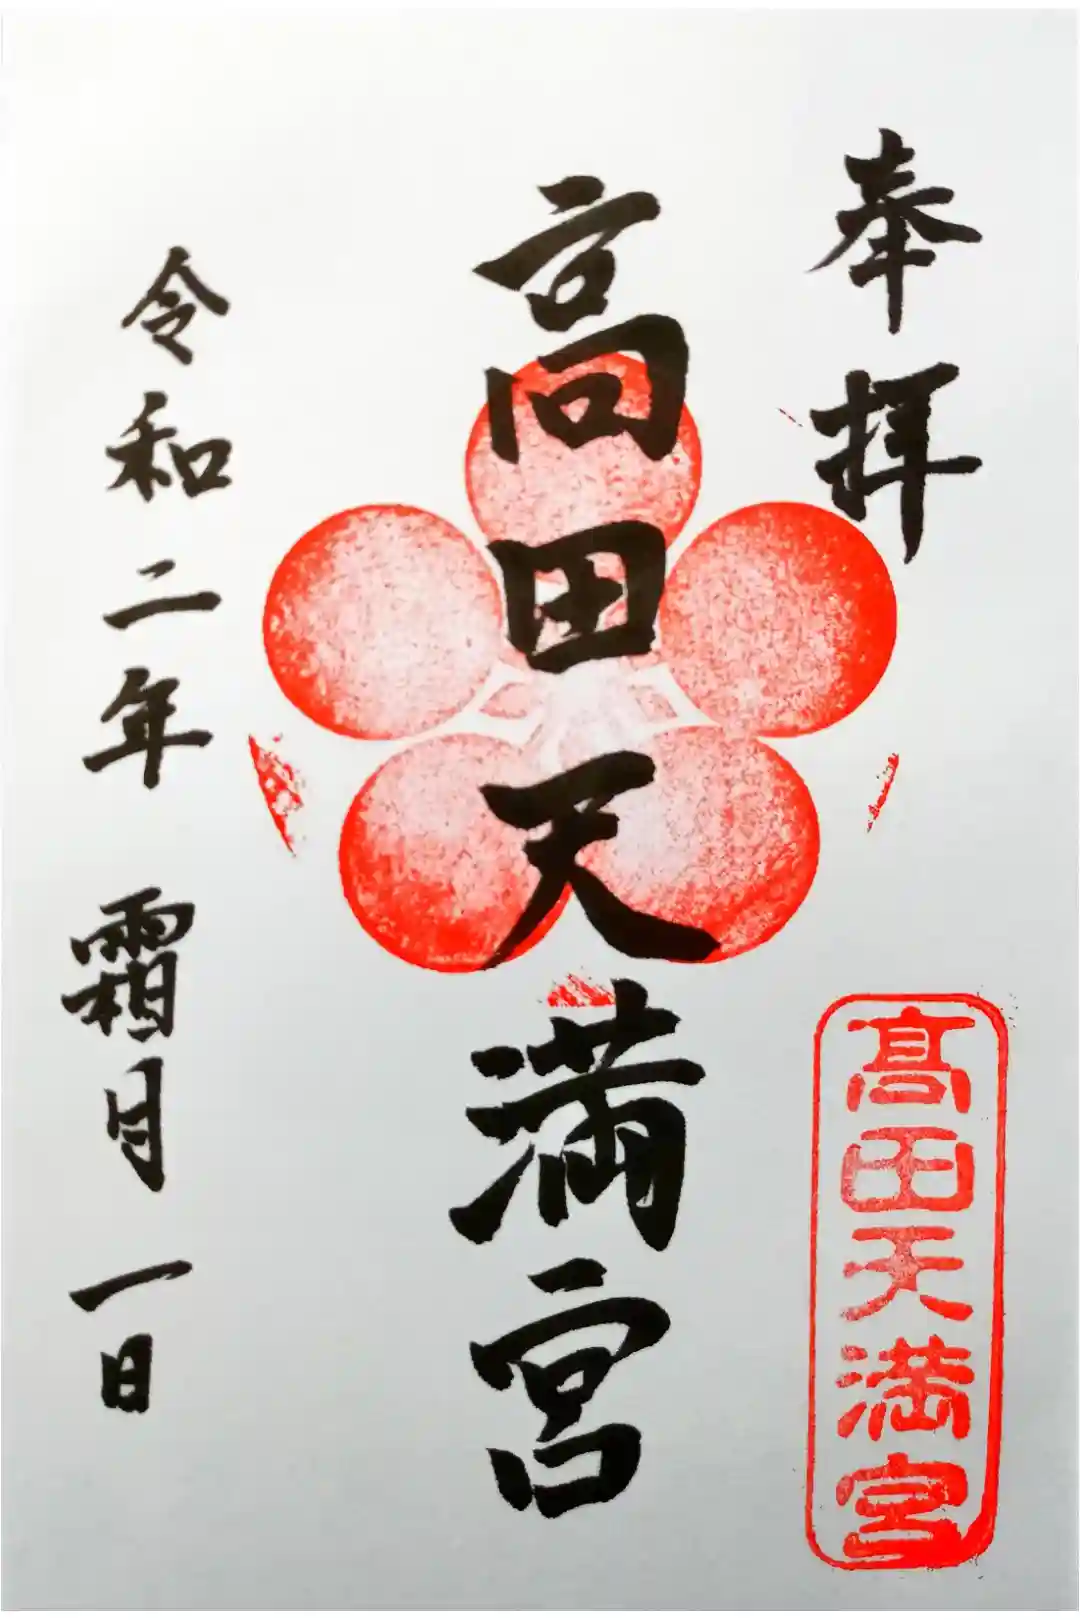 奉拝
高田天満宮
令和二年 霜月 一日
髙田天満宮